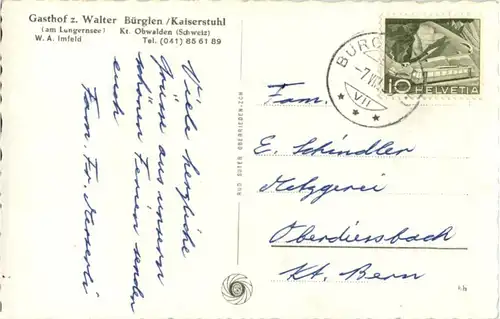 Gasthof z. Walter Bürglen /Kaiserstuhl
(am Lungernsee) Kt. Obwalden (Schweiz)
W. A. Imfeld Tel. (041) 85 61 89
Viele herzliche
Grüsse aus unsern
schönen Ferien senden
euch
Fam. Fr.
RUD. SUTER OBERRIEDEN-ZCH
BÜRG
-7.VII
VII
10 HELVETIA
Fam.
E. Schindler
Metzgerei
Oberdiessbach
Kt. Bern